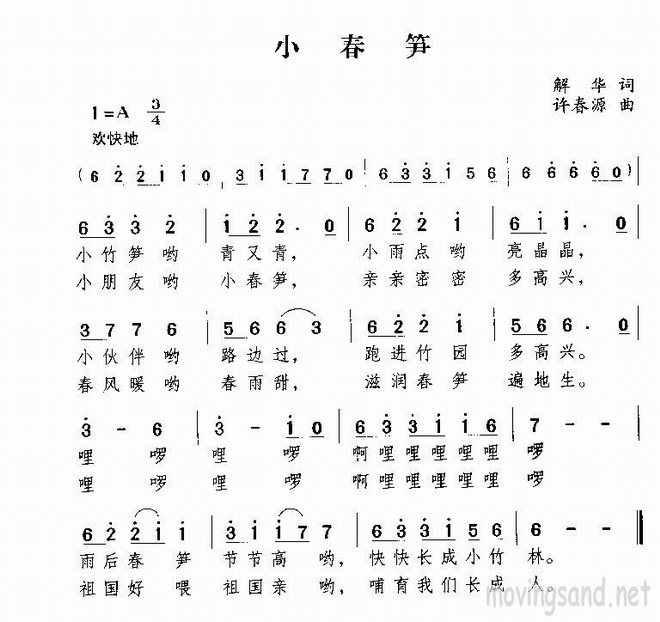 小春笋
解华 词
1=A 3/4
许春源 曲
欢快地
(6 2 2 1 1 0 3 1 1 7 7 0 6 3 3 1 5 6 6 6 6 6 0)
6 3 3 2 1 2 2· 0 6 2 2 1 6 1 1· 0
小竹笋哟 青又青, 小雨点哟 亮晶晶,
小朋友哟 小春笋, 亲亲密密 多高兴,
3 7 7 6 5 6 6 3 6 2 2 1 5 6 6· 0
小伙伴哟 路边过, 跑进竹园 多高兴。
春风暖哟 春雨甜, 滋润春笋 遍地生。
3 - 6 3 - 1 0 6 3 3 1 1 6 7 - -
哩 啰 哩 啰 啊哩哩哩哩哩 啰
哩 啰 哩 啰 啊哩哩哩哩哩 啰
6 2 2 1 1 3 1 1 7 7 6 3 3 1 5 6 - -
雨后春笋 节节高哟, 快快长成小竹林。
祖国好喂 祖国亲哟, 哺育我们长成人。
movingsand.net